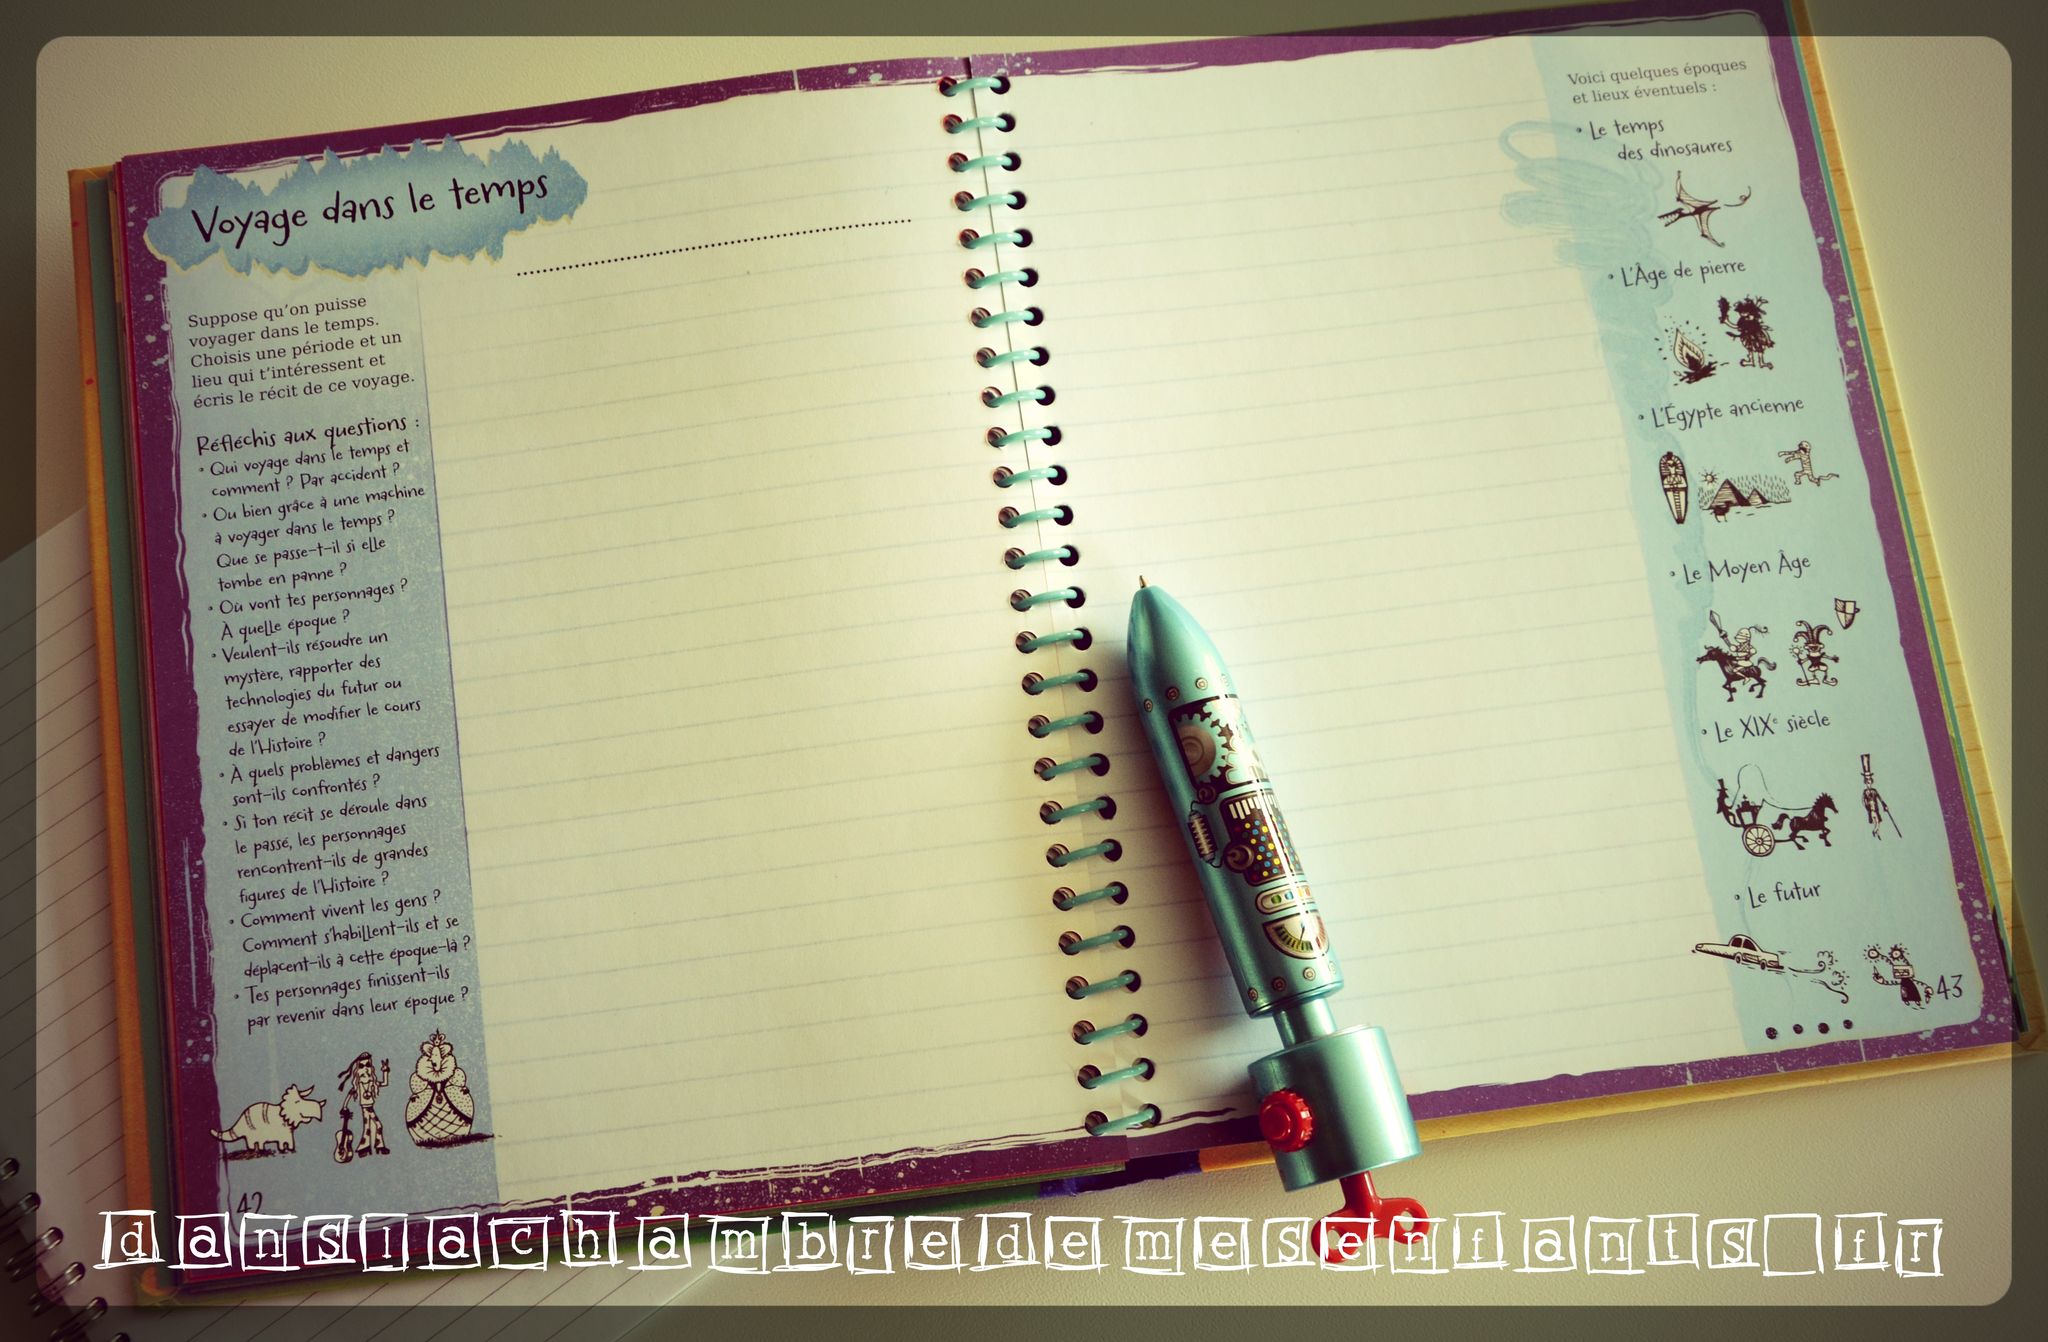 Voyage dans le temps
Suppose qu'on puisse
voyager dans le temps.
Choisis une période et un
lieu qui t'intéressent et
écris le récit de ce voyage.
Réfléchis aux questions :
• Qui voyage dans le temps et
comment ? Par accident ?
• Ou bien grâce à une machine
à voyager dans le temps ?
Que se passe-t-il si elle
tombe en panne ?
• Où vont tes personnages ?
À quelle époque ?
• Veulent-ils résoudre un
mystère, rapporter des
technologies du futur ou
essayer de modifier le cours
de l'Histoire ?
• À quels problèmes et dangers
sont-ils confrontés ?
• Si ton récit se déroule dans
le passé, les personnages
rencontrent-ils de grandes
figures de l'Histoire ?
• Comment vivent les gens ?
Comment s'habillent-ils et se
déplacent-ils à cette époque-là ?
• Tes personnages finissent-ils
par revenir dans leur époque ?
42
Voici quelques époques
et lieux éventuels :
• Le temps
des dinosaures
• L'Âge de pierre
• L'Égypte ancienne
• Le Moyen Âge
• Le XIXe siècle
• Le futur
43
danslachambredemesenfants fr